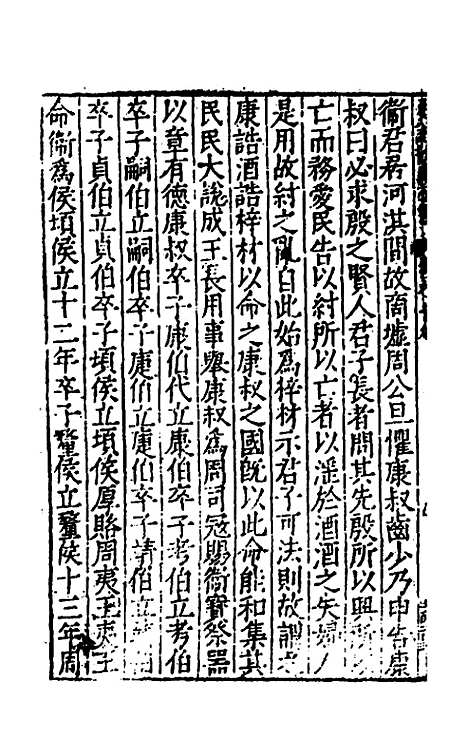 衞君居河淇間故商墟周公旦懼康叔齒少乃申告康
叔曰必求殷之賢人君子長者問其先殷所以興所以
亡而務愛民告以紂所以亡者以淫於酒酒之失婦人
是用故紂之亂自此始爲梓材示君子可法則故謂之
康誥酒誥梓材以命之康叔之國旣以此命能和集其
民民大說成王長用事舉康叔爲周司寇賜衞寳祭器
以章有德康叔卒子康伯代立康伯卒子考伯立考伯
卒子嗣伯立嗣伯卒子㨗伯立㨗伯卒子靖伯立靖伯
卒子貞伯立貞伯卒子頃侯立頃侯厚賂周夷王夷王
命衞爲侯頃侯立十二年卒子釐侯立釐侯十三年周